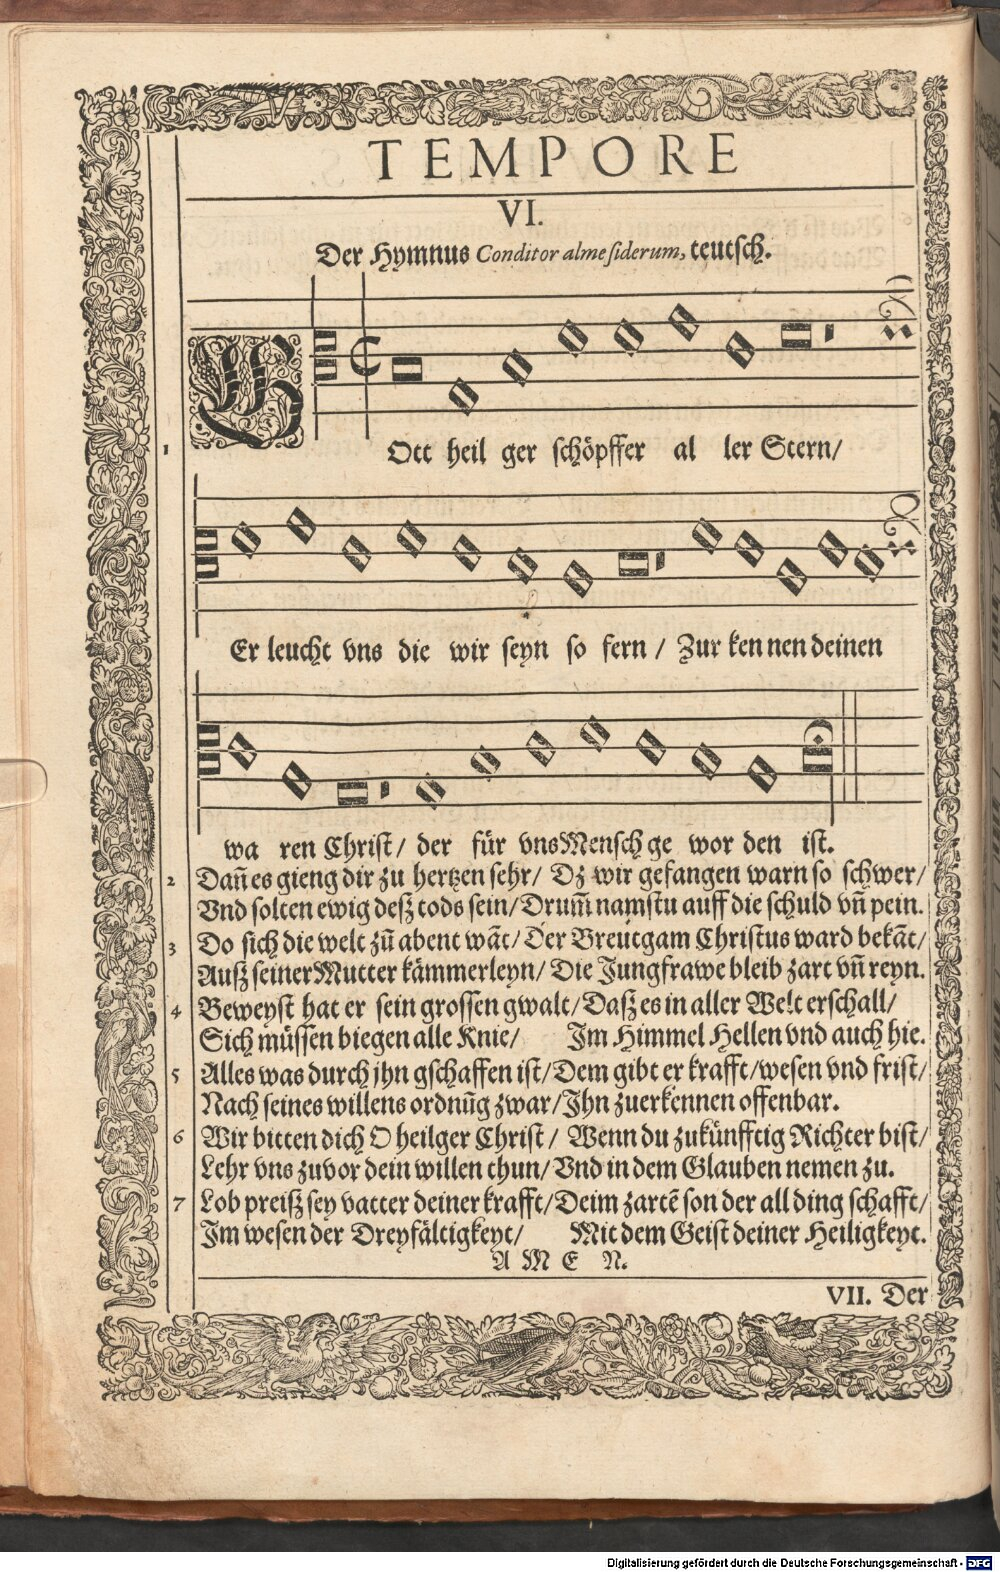 TEMPORE
VI.
Der Hymnus Conditor alme siderum, teutsch.
1 GOtt heil ger schöpffer al ler Stern/
Er leucht vns die wir seyn so fern / Zur ken nen deinen
wa ren Christ/ der für vns Mensch ge wor den ist.
2 Dañ es gieng dir zu hertzen sehr/ Dz wir gefangen warn so schwer/
Vnd solten ewig desz tods sein/ Drum̃ namstu auff die schuld vñ pein.
3 Do sich die welt zũ abent wãt/ Der Breutgam Christus ward bekãt/
Ausz seiner Mutter kämmerleyn/ Die Jungfrawe bleib zart vñ reyn.
4 Beweyst hat er sein grossen gwalt/ Dasz es in aller Welt erschall/
Sich müssen biegen alle Knie/ Im Himmel Hellen vnd auch hie.
5 Alles was durch jhn gschaffen ist/ Dem gibt er krafft/ wesen vnd frist/
Nach seines willens ordnũg zwar/ Jhn zuerkennen offenbar.
6 Wir bitten dich O heilger Christ / Wenn du zukünfftig Richter bist/
Lehr vns zuvor dein willen thun/ Vnd in dem Glauben nemen zu.
7 Lob preisz sey vatter deiner krafft/ Deim zartẽ son der all ding schafft/
Im wesen der Dreyfältigkeyt/ Mit dem Geist deiner Heiligkeyt.
A M E N.
VII. Der
Digitalisierung gefördert durch die Deutsche Forschungsgemeinschaft - DFG